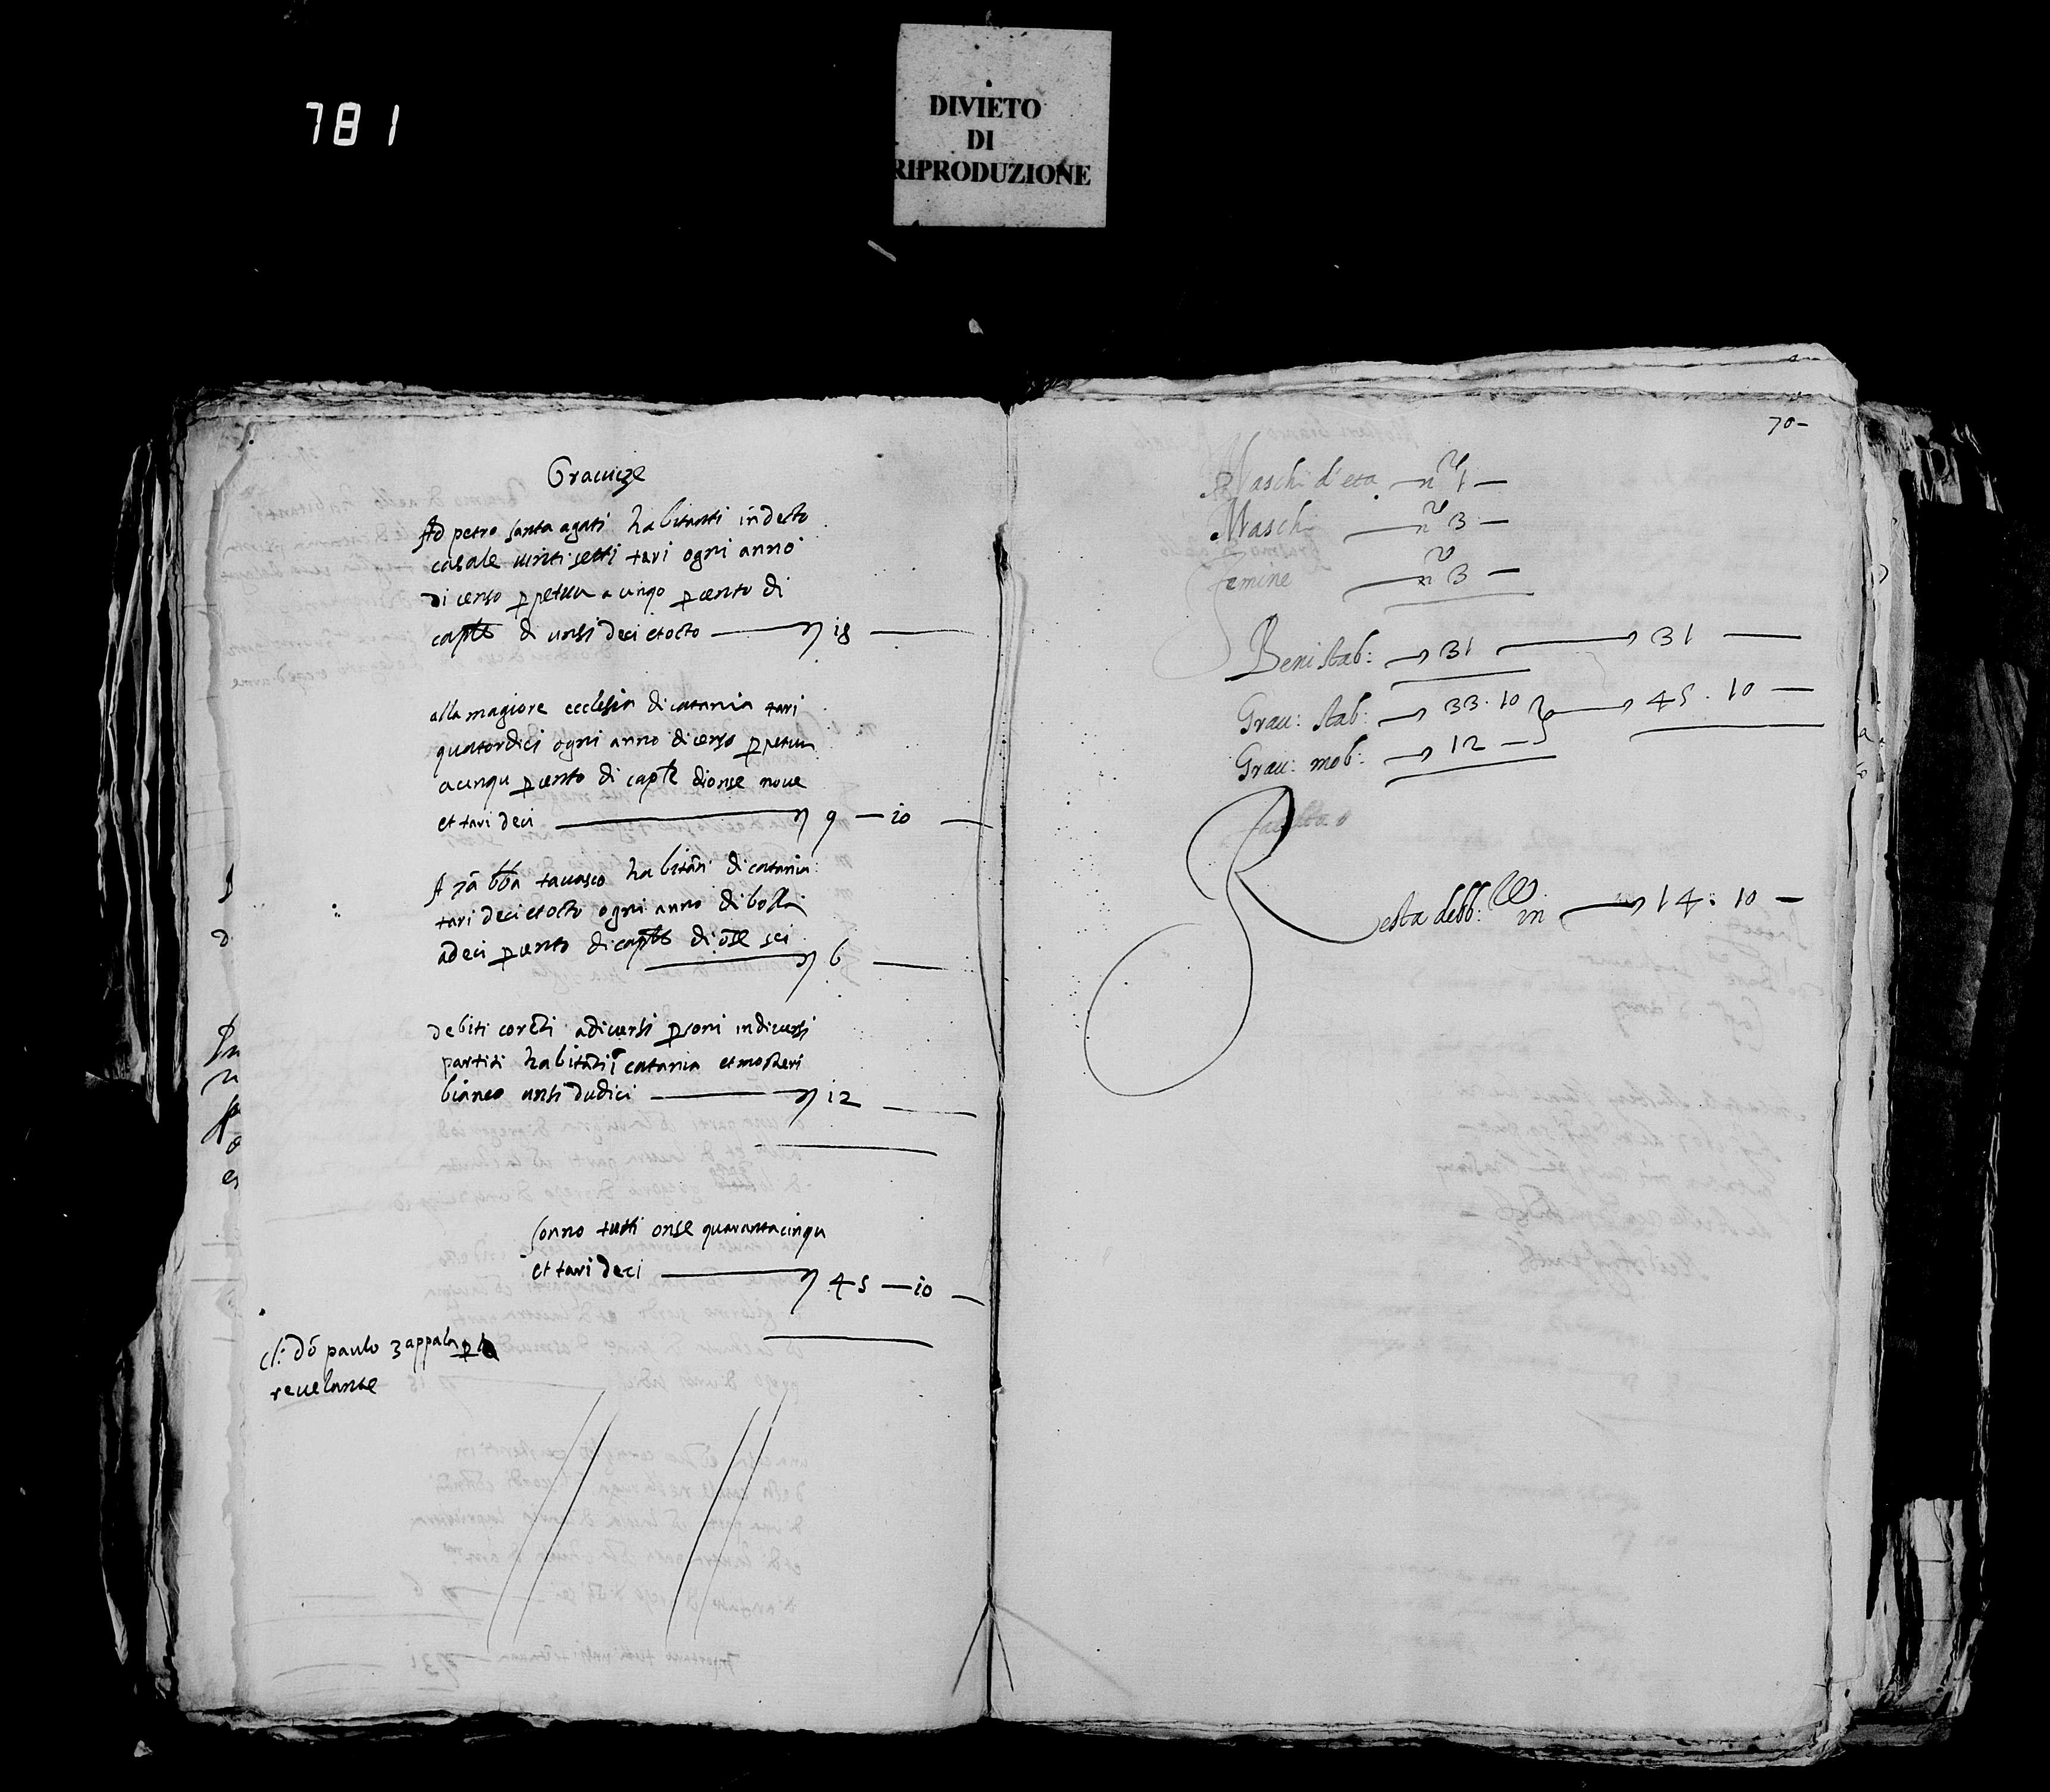 781
DIVIETO
DI
RIPRODUZIONE
Gravicze
Ad petro santa agati habitanti in decto
casale vinti setti tari ogni anno
di censo p petuu a cinqo p cento di
capti di unsi deci et octo — 18 —
alla magiore ecclesia di catania tari
quatordici ogni anno di censo p petuu
a cinqu p cento di captli di onse nove
et tari deci — 9 — 10 —
A bba tavasco habitan di catania
tari deci et octo ogni anno di bolla
a deci p cento di captli di onse sei
— 6 —
debiti correnti a diversi p soni in diversi
partiti habitanti catania et mosteri
bianco unsi dudici — 12 —
sonno tutti onse quaranta cinqu
et tari deci — 45 — 10 —
cl: dō paulo zappala p lo
revelante
70 —
Maschi d'eta — n.º 1 —
Maschi — n.º 3 —
Femine — n.º 3 —
Beni stab: — 31 — 31 —
Grav: stab: — 33.10 — 45.10 —
Grav: mob: — 12 —
facolta
Resta debb: in — 14:10 —